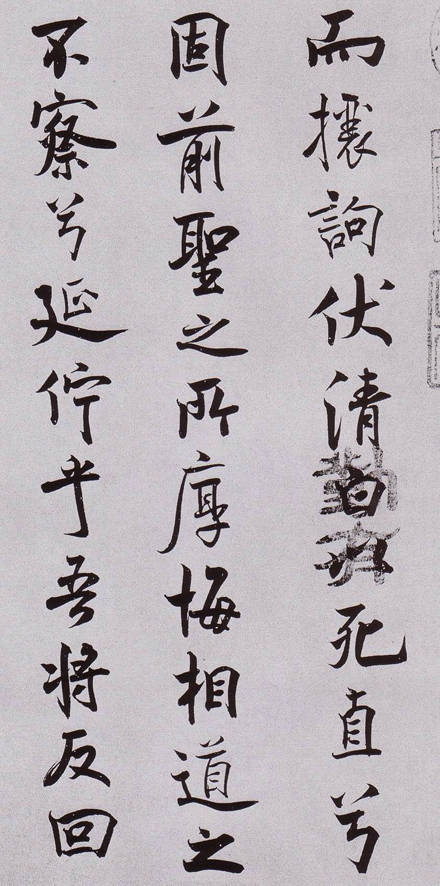 而攘詢伏清白以死直兮
固前聖之所厚悔相道之
不察兮延佇乎吾將反回